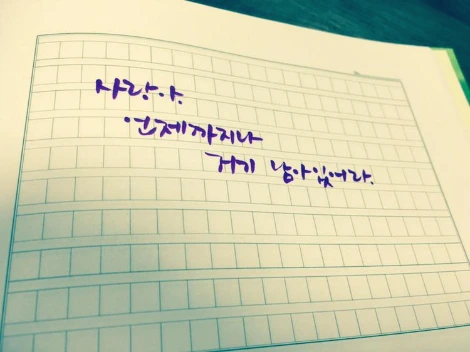 사랑아.
언제까지나
거기 남아있어라.